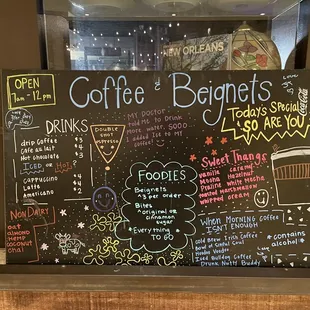 NEW ORLEANS
OPEN
7am - 12pm
Coffee & Beignets
Today's Special
SO ARE YOU
DRINKS
drip coffee
Cafe au lait
Hot chocolate
ICED or HOT
CAPPUCCINO
Latte
AMERICANO
DOUBLE
SHOT
ESPRESSO
MY DOCTOR
told me to DRINK
more water, SOOO
added ICE to
my Coffee!
Sweet Thangs
vanilla caramel
Mocha Hazelnut
Praline white Mocha
roasted marshmallow
whipped cream
FOODIES
Beignets
3 per order
Bites
original or
cinnamon
sugar
*Everything
TO GO
NON DAIRY
oat
almond
hemp
coconut
When Morning Coffee
ISN'T ENOUGH
Cold Brew Irish Coffee
Voodoo
Iced Bulldog Coffee
Drunk Nutty Buddy
*contains
alcohol*